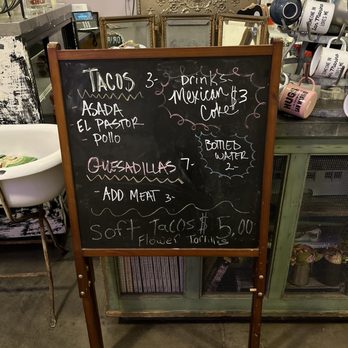 TACOS 3-
ASADA
EL PASTOR
Pollo
Drinks
Mexican $3
Cokes
BOTTLED
WATER
2-
QUESADILLAS 7-
- ADD MEAT 3-
Soft Tacos $5.00
Flower Tortillis